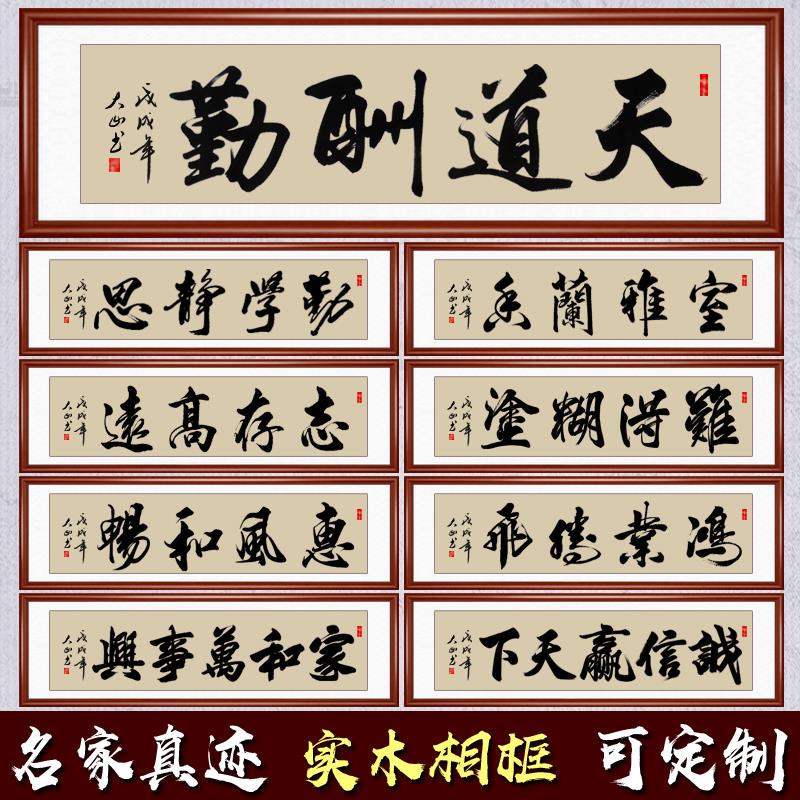 天道酬勤
戊戌年
大山书
勤學静思
戊戌年
大山书
室雅蘭香
戊戌年
大山书
志存高遠
戊戌年
大山书
難得糊塗
戊戌年
大山书
惠風和暢
戊戌年
大山书
鴻業騰飛
戊戌年
大山书
家和萬事興
戊戌年
大山书
誠信贏天下
戊戌年
大山书
名家真迹 实木相框 可定制